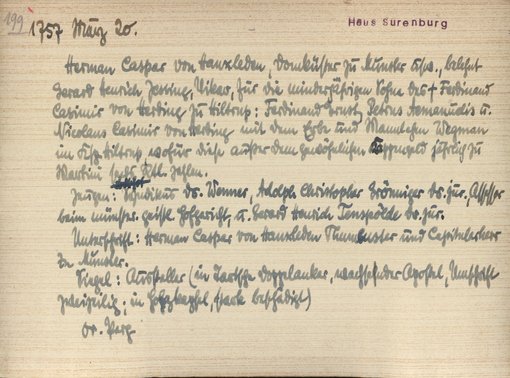 199
1757 März 20.
Haus Surenburg
Herman Caspar von Hanxleden, Domküster zu Münster usw., belehnt
Gerard Henrich Jessing, Vikar, für die minderjährigen Söhne des † Ferdinand
Casimir von Herding zu Hiltrup: Ferdinand Ernst, Petrus Aemanudis u.
Nicolaus Casimir von Herding mit dem Erbe und Mannlehn Wegman
im Ksp. Hiltrup wofür diese außer dem gewöhnlichen jährlich zu
Martini sechs Rtl. zahlen.
Zeugen: Syndikus Dr. Wenner, Adolph Christopher Brönniger Dr. jur., Assessor
beim münster. geistl. Hofgericht, u. Gerard Henrich Dr. jur.
Unterschrift: Herman Caspar von Hanxleden Thumbuster und Capitelarherr
zu Münster.
Siegel: Aussteller (in Tartsche Doppelanker, wachsender Apostel, Umschrift
zweizeilig; in Holzkapsel, stark beschädigt)
Or. Perg.